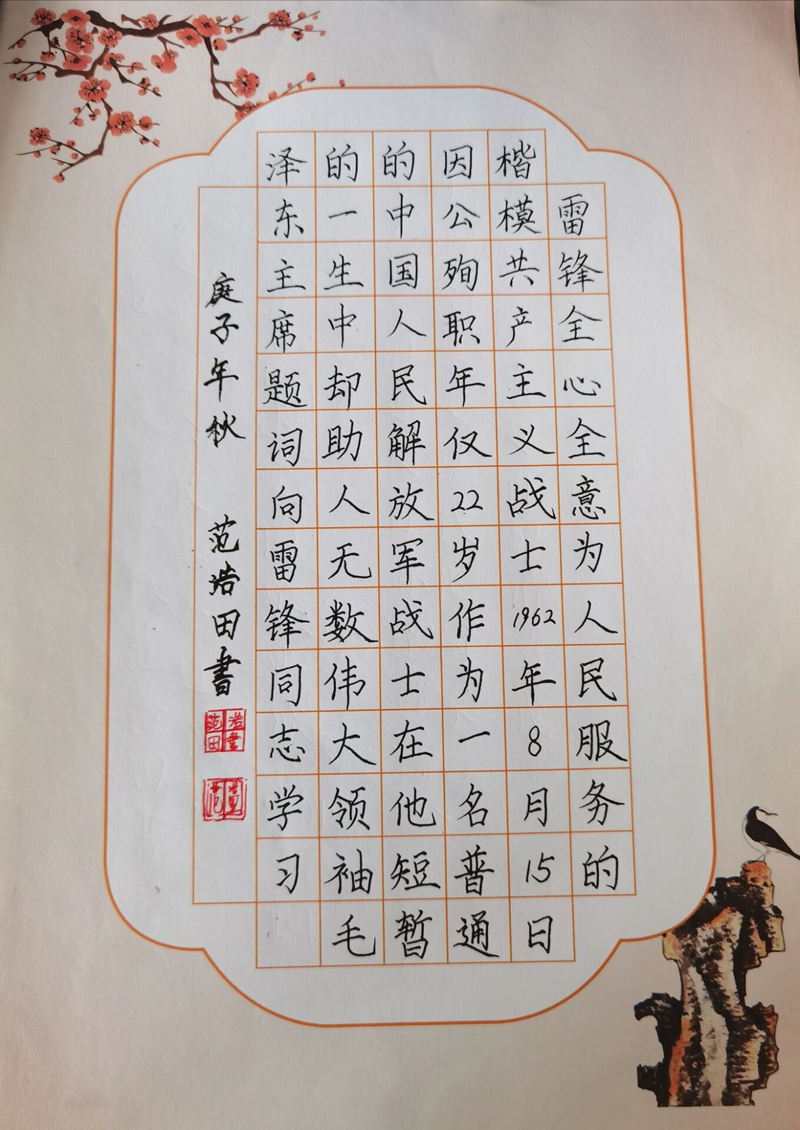 雷锋全心全意为人民服务的
楷模共产主义战士1962年8月15日
因公殉职年仅22岁作为一名普通
的中国人民解放军战士在他短暂
的一生中却助人无数伟大领袖毛
泽东主席题词向雷锋同志学习
庚子年秋 范浩田書
浩書范田